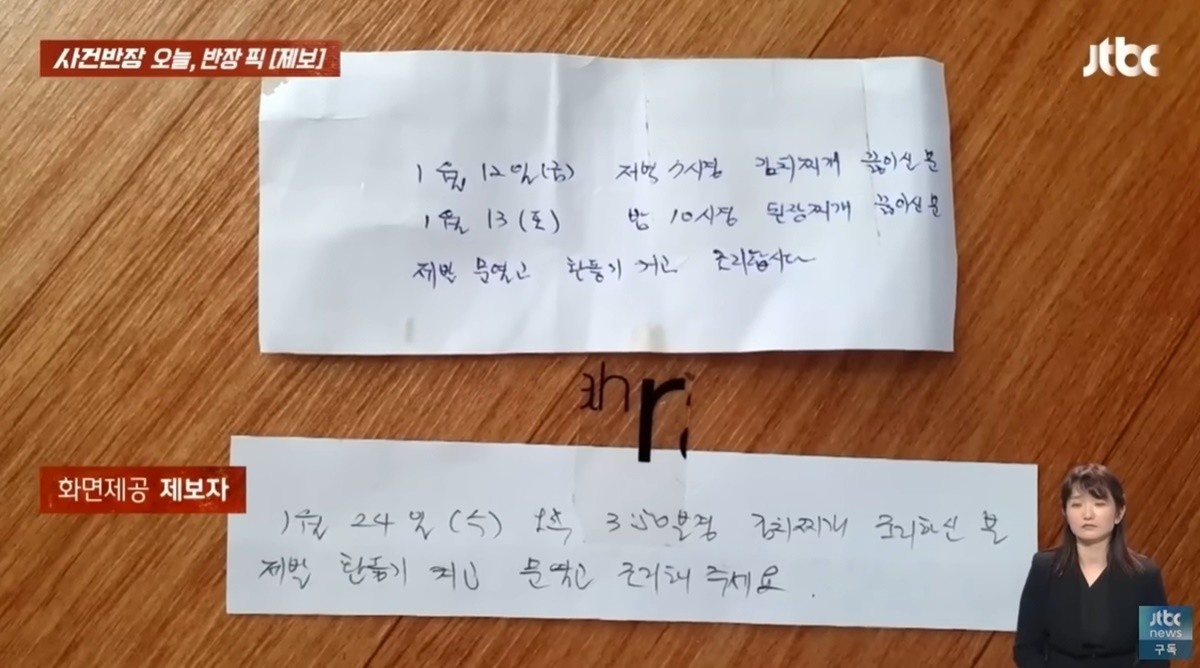 사건반장 오늘, 반장 픽 [제보]
jtbc
1월 12일(금) 저녁 7시경 김치찌개 끓이신 분
1월 13(토) 밤 10시경 된장찌개 끓이신 분
제발 문열고 환풍기 켜고 조리합시다
화면제공 제보자
1월 24일(수) 오후 3:50분경 김치찌개 조리하신 분
제발 환풍기 켜고 문열고 조리해 주세요.
jtbc
news
구독